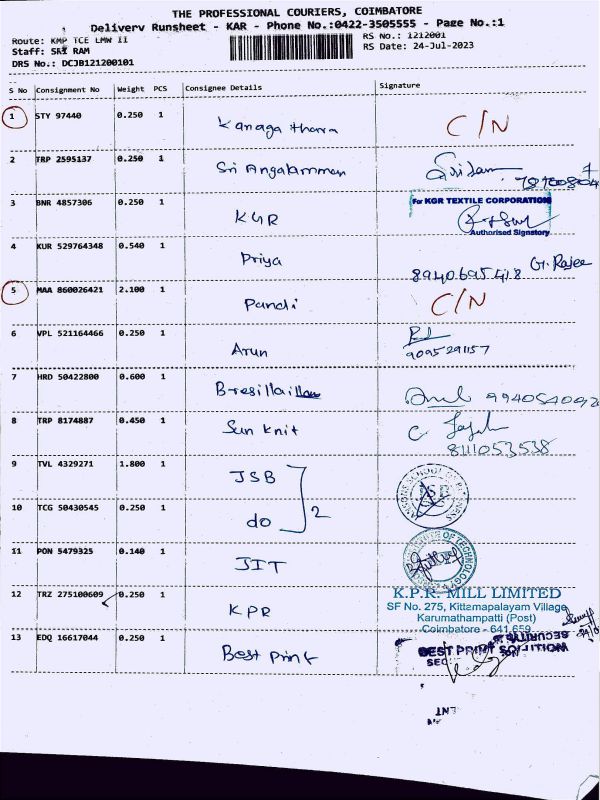 THE PROFESSIONAL COURIERS, COIMBATORE
Delivery Runsheet - KAR - Phone No.:0422-3505555 - Page No.:1
Route: KMP TCE LMW II RS No.: 1212001
Staff: SRI RAM RS Date: 24-Jul-2023
DRS No.: DCJB121200101
S No Consignment No Weight PCS Consignee Details Signature
1 STY 97440 0.250 1 Kanaga tharra C/N
2 TRP 2595137 0.250 1 Sri Angalamman
3 BNR 4857306 0.250 1 KGR For KGR TEXTILE CORPORATION
Authorised Signatory
4 KUR 529764348 0.540 1 Priya G. Rajee
8940695418
5 MAA 860026421 2.100 1 Pandi C/N
6 VPL 521164466 0.250 1 Arun
9095291157
7 HRD 50422800 0.600 1 Bresilla
8 TRP 8174887 0.450 1 Sun Knit
8111053538
9 TVL 4329271 1.800 1 JSB
2
10 TCG 50430545 0.250 1 do
11 PON 5479325 0.140 1 JIT
12 TRZ 275100609 0.250 1 KPR
K.P.R. MILL LIMITED
SF No. 275, Kittampalayam Village
Karumathampatti (Post)
Coimbatore - 641 659
13 EDQ 16617044 0.250 1 Best Print
BEST PRINT SOLUTION
SECURITY